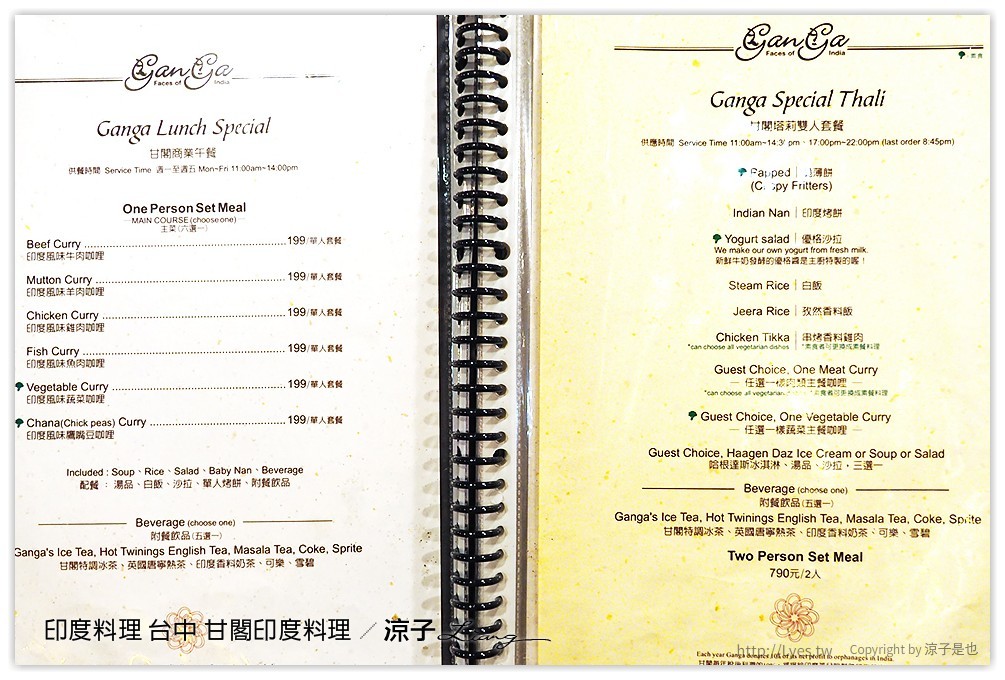 GanGa
Faces of India
Ganga Lunch Special
甘閣商業午餐
供餐時間 Service Time 週一至週五 Mon~Fri 11:00am~14:00pm
One Person Set Meal
MAIN COURSE (choose one)
主菜(六選一)
Beef Curry 199/單人套餐
印度風味牛肉咖哩
Mutton Curry 199/單人套餐
印度風味羊肉咖哩
Chicken Curry 199/單人套餐
印度風味雞肉咖哩
Fish Curry 199/單人套餐
印度風味魚肉咖哩
Vegetable Curry 199/單人套餐
印度風味蔬菜咖哩
Chana(Chick peas) Curry 199/單人套餐
印度風味鷹嘴豆咖哩
Included : Soup、Rice、Salad、Baby Nan、Beverage
配餐 : 湯品、白飯、沙拉、單人烤餅、附餐飲品
Beverage (choose one)
附餐飲品(五選一)
Ganga's Ice Tea, Hot Twinings English Tea, Masala Tea, Coke, Sprite
甘閣特調冰茶、英國唐寧熱茶、印度香料奶茶、可樂、雪碧
印度料理 台中 甘閣印度料理 / 涼子
GanGa
Faces of India
:素食
Ganga Special Thali
甘閣塔莉雙人套餐
供應時間 Service Time 11:00am~14:3 pm、17:00pm~22:00pm (last order 8:45pm)
Papped | 薄餅
(C spy Fritters)
Indian Nan | 印度烤餅
Yogurt salad | 優格沙拉
We make our own yogurt from fresh milk.
新鮮牛奶發酵的優格醬是主廚特製的喔!
Steam Rice | 白飯
Jeera Rice | 孜然香料飯
Chicken Tikka | 串烤香料雞肉
*can choose all vegetarian dishes *素食者可更換成素餐料理
Guest Choice, One Meat Curry
— 任選一樣肉類主餐咖哩 —
*can choose all vegetarian *素食者可更換成素餐料理
Guest Choice, One Vegetable Curry
— 任選一樣蔬菜主餐咖哩 —
Guest Choice, Haagen Daz Ice Cream or Soup or Salad
哈根達斯冰淇淋、湯品、沙拉,三選一
Beverage (choose one)
附餐飲品(五選一)
Ganga's Ice Tea, Hot Twinings English Tea, Masala Tea, Coke, Sprite
甘閣特調冰茶、英國唐寧熱茶、印度香料奶茶、可樂、雪碧
Two Person Set Meal
790元/2人
Each year Ganga donates 10% of its net profit to orphanages in India.
http://Lyes.tw Copyright by 涼子是也